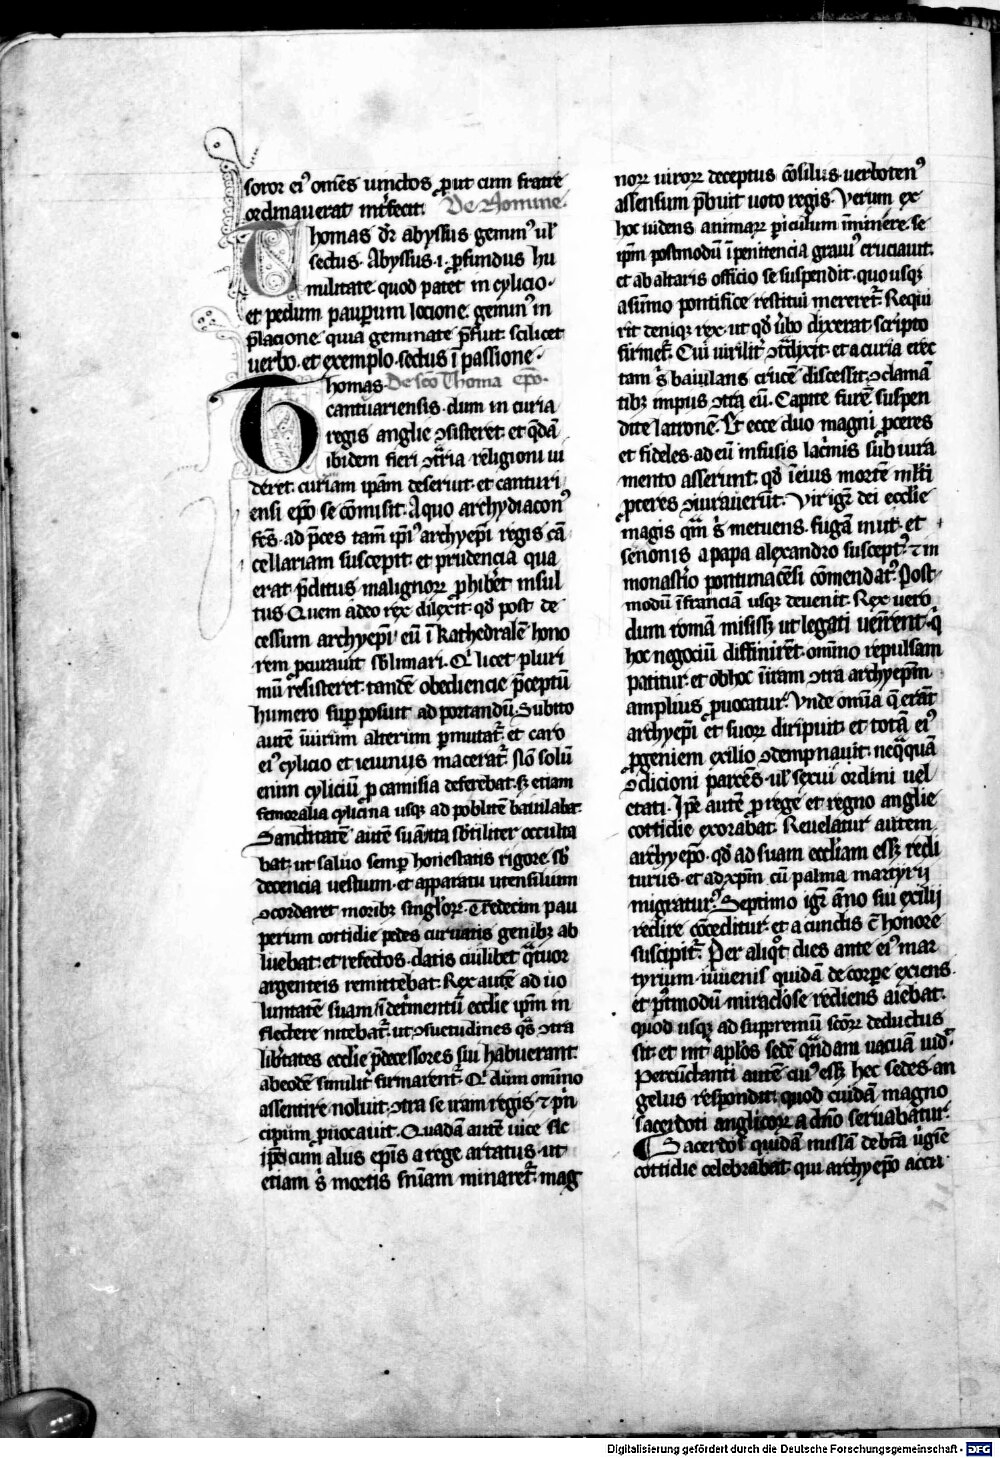 soror eiꝰ om̄es vinctos ꝓut cum fratre
ordinauerat int̄fecit. De Nomine.
Thomas dr̄ abyssus geminꝰ ul̕
sectus. Abyssus .i. ꝓfundus hu
militate quod patet in cylicio.
et pedum pauꝑum locione. geminꝰ in
p̄lacione quia geminate p̄fuit. scilicet
uerbo. et exemplo. sectus ī passione.
Thomas De sc̄o Thoma ep̄o.
cantuariensis. dum in curia
regis anglie ꝯsisteret. et q̄dā
ibidem fieri ꝯt̄ria religioni ui
deret. curiam ip̄am deseruit. et canturi
ensi ep̄o se cōmisit. A quo archydiaconꝰ
fc̄s. ad p̄ces tam̄ ip̄iꝰ archyep̄i regis cā
cellariam suscepit. et prudencia qua
erat p̄ditus malignoꝝ ꝓhib̄et insul
tus. Quem adeo rex dilexit. qd̄ post de
cessum archyep̄i eū ī kathedralē hono
rem ꝓcurauit sb̄limari. Qī licet pluri
mū resisteret. tandē obediencie p̄ceptū
humero suꝑposuit ad portandū. Subito
autē ī uirum alterum ꝑmutat̄. et caro
eiꝰ cylicio et ieiunus macerat̄. Nō solū
enim cyliciū ꝓ camisia deferebat. sꝫ etiam
femoralia cylicina usqꝫ ad poblitē baiulabat.
Sanctitatē autē suam ita sb̄tiliter occulta
bat. ut saluo semꝑ honestatis rigore. sb̄
decencia uestium. et apparatu utensilium
ꝯcordaret moribꝫ singl̕oꝝ. Tredecim pau
perum cottidie pedes curuatis genibꝫ ab
luebat. et refectos. datis cuilibet q̄tuor
argenteis remittebat. Rex autē ad uo
luntatē suam ī det̄mentū eccl̕ie ip̄m in
flectere nitebat̄. ut ꝯsuetudines qs̄ ꝯtra
lib̄tates eccl̕ie p̄decessores sui habuerant.
ab eodē similit̄ firmarent̄. Qī dum om̄ino
assentire noluit. ꝯtra se iram regis ⁊ p̄n
cipum ꝓuocauit. Quadā autē uice sic
ip̄e cum aliis ep̄is a rege artatus. ut
etiam s̄ mortis snīam minaret̄. mag
noꝝ uiroꝝ deceptus cōsiliis uerbotenꝰ
assensum p̄buit uoto regis. Verum ex
hoc uidens animaꝝ ꝑiculum īminere. se
ip̄m postmodū ī penitencia grauiꝰ cruciauit.
et ab altaris officio se suspendit. quousqꝫ
a sūmo pontifice restitui mereret̄. Requi
rit deniqꝫ rex. ut qd̄ ūbo dixerat scripto
firmet̄. Cui uirilit̄ ꝯt̄dixit. et a curia erec
tam s̄ baiulans crucē discessit. ꝯclamā
tibꝫ impiis ꝯtra eū. Capite furē suspen
dite latronē. Et ecce duo magni ꝓceres
et fideles. ad eū infusis lac̄mis sub iura
mento asserunt. qd̄ ī eius mortē ml̕ti
ꝓceres ꝯiurauerūt. Vir igr̄ dei eccl̕ie
magis q̄m s̄ metuens. fugam iniit. et
senonis a papa alexandro susceptꝰ. ⁊ in
monast̄io pontiniacēsi cōmendatꝰ. Post
modū ī franciā usqꝫ deuenit. Rex uero
dum romā misissꝫ ut legati uenirent. q̄
hoc negociū diffinirēt. om̄ino repulsam
patitur. et ob hoc ī iram ꝯtra archyep̄m
amplius ꝓuocatur. Vnde om̄ia q̄ erāt
archyep̄i et suoꝝ diripuit. et totā eiꝰ
ꝓgeniem exilio ꝯdempnauit. neq̄quā
ꝯdicioni parcēs. ul̕ sexui ordini uel
etati. Ip̄e autē ꝓ rege et regno anglie
cottidie exorabat. Reuelatur autem
archyep̄o. qd̄ ad suam eccl̕iam essꝫ redi
turus. et ad xp̄m cū palma martyrii
migraturꝰ. Septimo igr̄ āno sui exilij
redire cōceditur. et a cunctis c̄ honore
suscipit̄. Per aliqt̄ dies ante eiꝰ mar
tyrium. iuuenis quidā de corꝑe exiens.
et p̄tmodū miracl̕ose rediens aiebat.
quod usqꝫ ad suppremū sc̄oꝝ deductus
sit. et int̄ apl̕os sedē q̄ndam uacuā uid̄.
Percūctanti autē cuiꝰ essꝫ hec sedes. an
gelus respondit. quod cuidā magno
sacerdoti anglicoꝝ a dn̄o seruabatur.
Sacerdos quidā missā de bt̄a ūgīe
cottidie celebrabat. qui archyep̄o accu